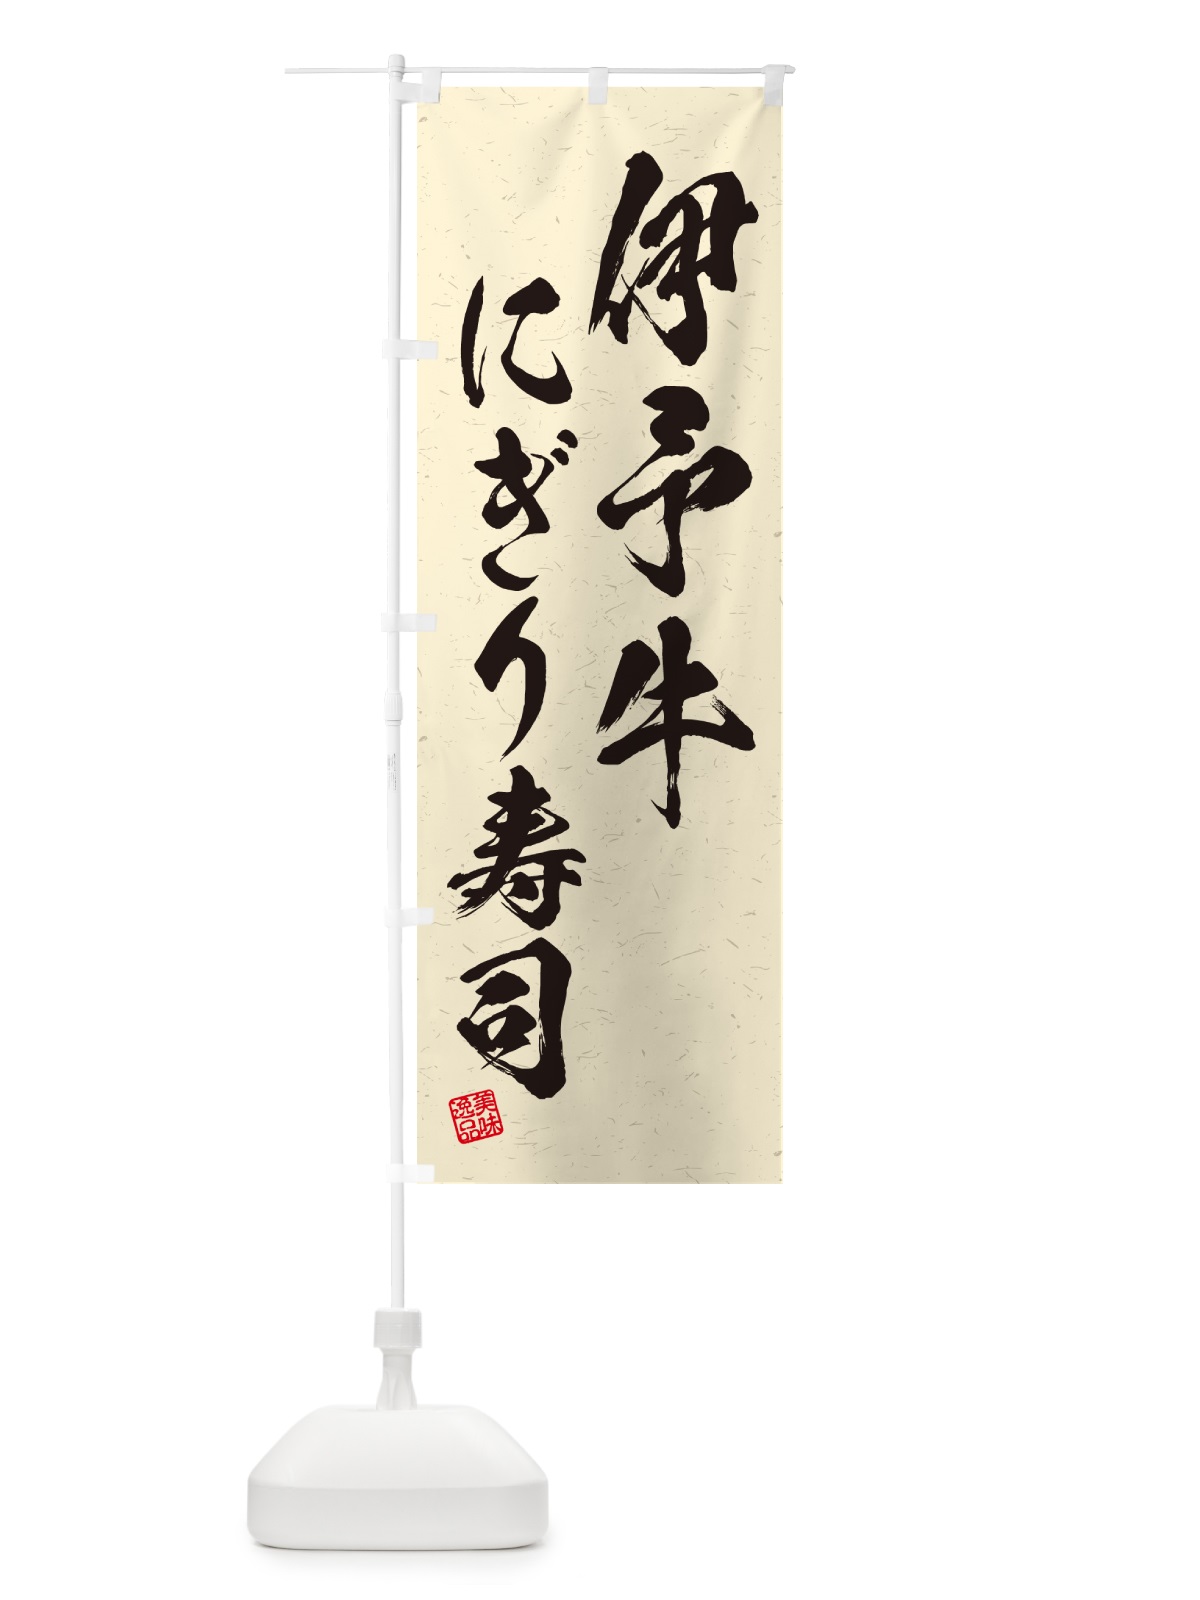 伊予牛
にぎり寿司
美味
逸品